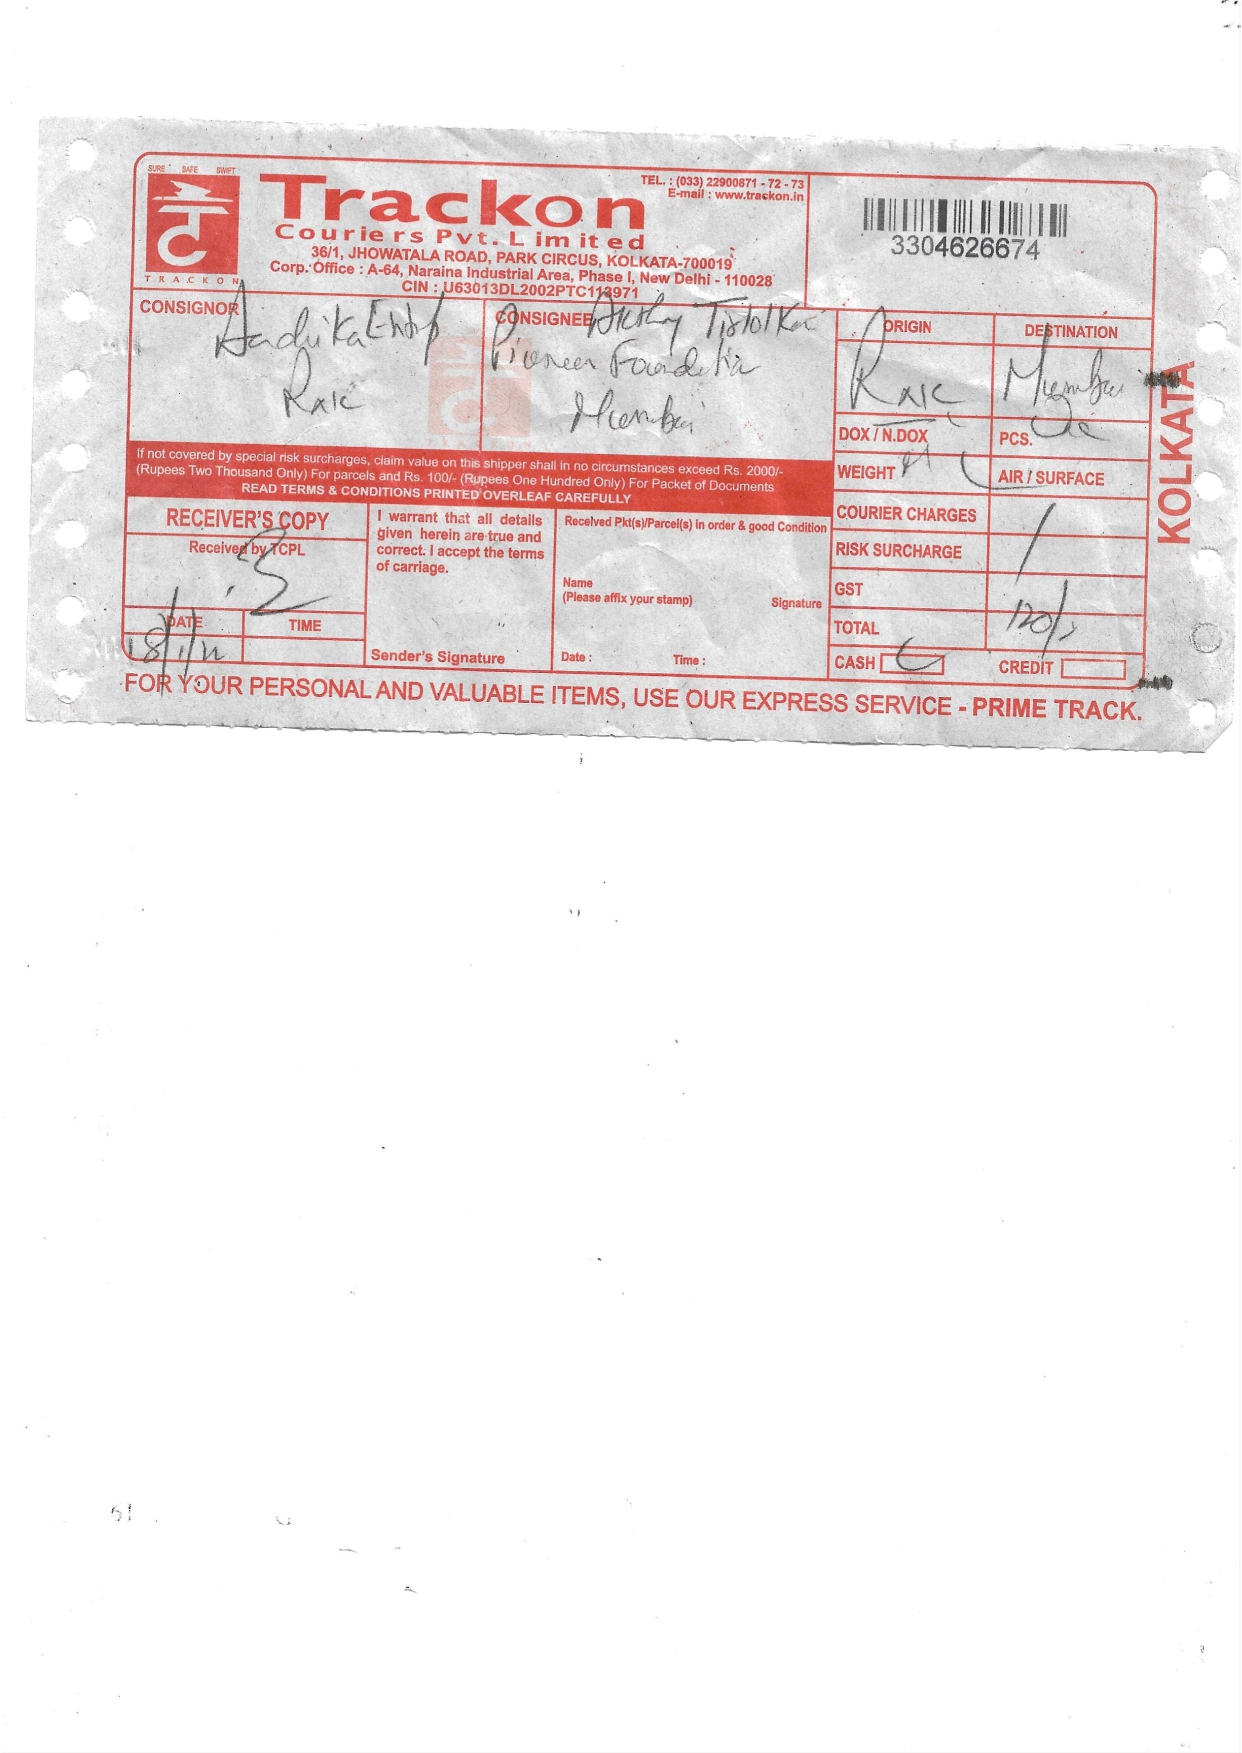 SURE SAFE SWIFT
TRACKON
Trackon
Couriers Pvt. Limited
TEL. : (033) 22900871 - 72 - 73
E-mail : www.trackon.in
36/1, JHOWATALA ROAD, PARK CIRCUS, KOLKATA-700019
Corp. Office : A-64, Naraina Industrial Area, Phase I, New Delhi - 110028
CIN : U63013DL2002PTC113971
3304626674
CONSIGNOR
CONSIGNEE
Pioneer Foundation
Mumbai
ORIGIN
DESTINATION
Mumbai
KOLKATA
DOX / N.DOX
PCS.
WEIGHT
AIR / SURFACE
If not covered by special risk surcharges, claim value on this shipper shall in no circumstances exceed Rs. 2000/-
(Rupees Two Thousand Only) For parcels and Rs. 100/- (Rupees One Hundred Only) For Packet of Documents
READ TERMS & CONDITIONS PRINTED OVERLEAF CAREFULLY
RECEIVER'S COPY
Received by TCPL
DATE
TIME
I warrant that all details
given herein are true and
correct. I accept the terms
of carriage.
Sender's Signature
Received Pkt(s)/Parcel(s) in order & good Condition
Name
(Please affix your stamp)
Signature
Date :
Time :
COURIER CHARGES
RISK SURCHARGE
GST
TOTAL
120/
CASH
CREDIT
FOR YOUR PERSONAL AND VALUABLE ITEMS, USE OUR EXPRESS SERVICE - PRIME TRACK.